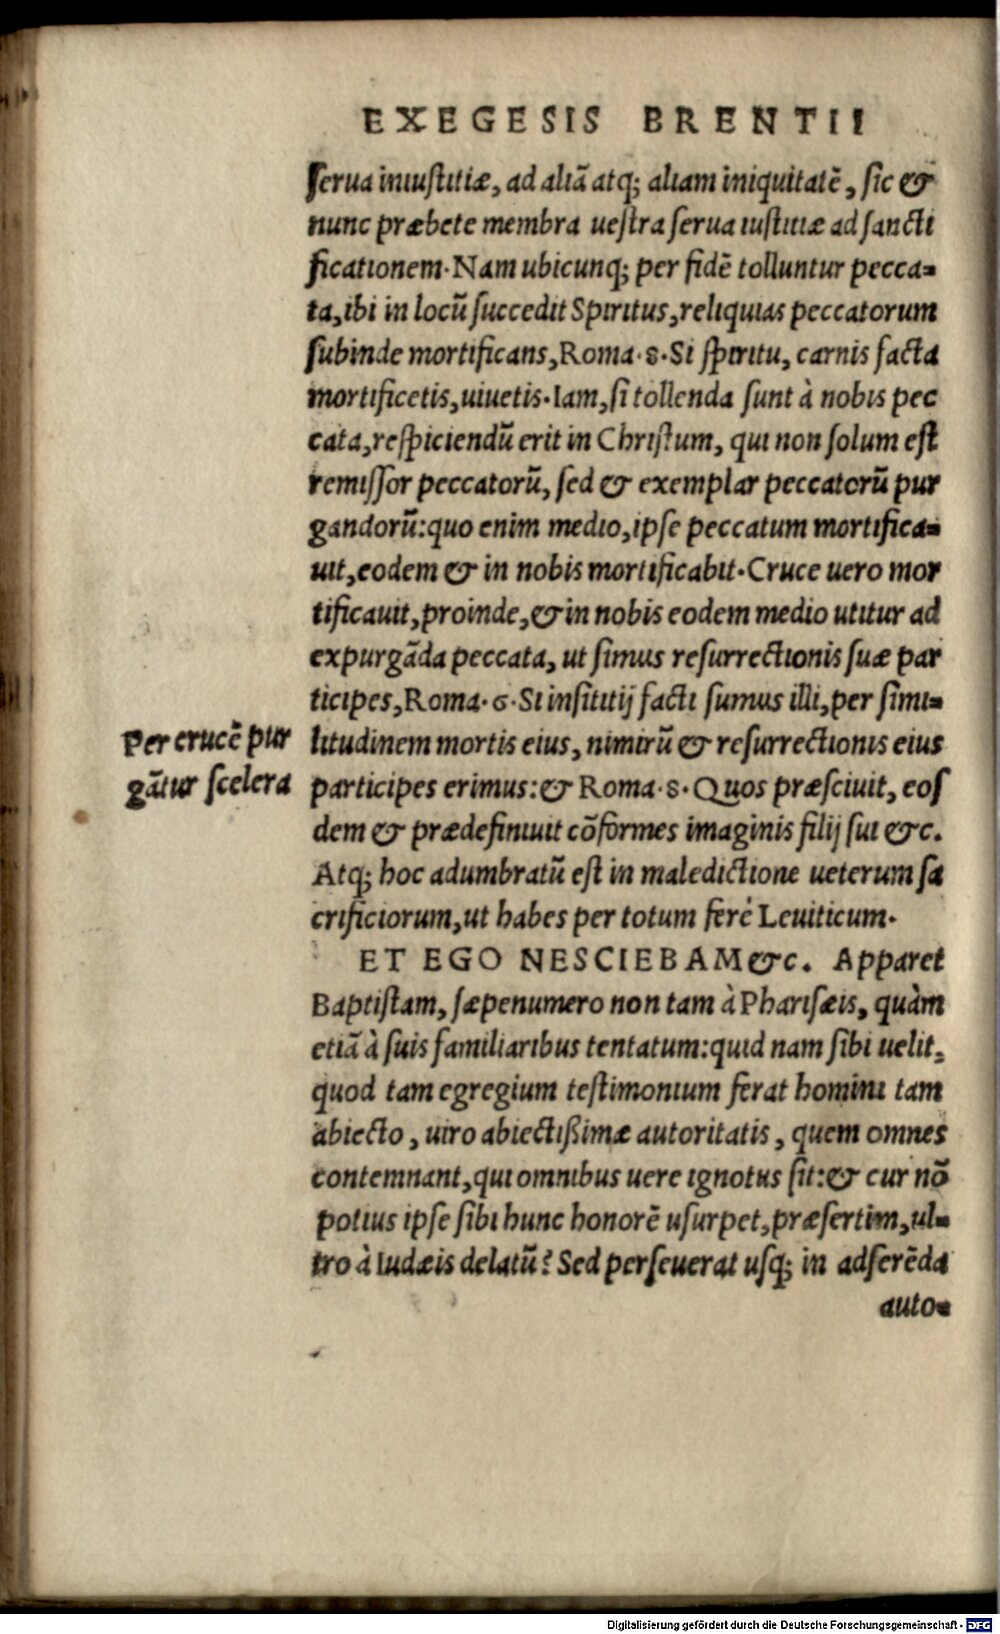 EXEGESIS BRENTII
serua iniustitiæ, ad aliã atq; aliam iniquitatẽ, sic &
nunc præbete membra uestra serua iustitiæ ad sancti
ficationem. Nam ubicunq; per fidẽ tolluntur pecca=
ta, ibi in locũ succedit Spiritus, reliquias peccatorum
subinde mortificans, Roma. 8. Si spiritu, carnis facta
mortificetis, uiuetis. Iam, si tollenda sunt à nobis pec
cata, respiciendũ erit in Christum, qui non solum est
remissor peccatorũ, sed & exemplar peccatorũ pur
gandorũ: quo enim medio, ipse peccatum mortifica=
uit, eodem & in nobis mortificabit. Cruce uero mor
tificauit, proinde, & in nobis eodem medio utitur ad
expurgãda peccata, ut simus resurrectionis suæ par
ticipes, Roma. 6. Si insititij facti sumus illi, per simi=
litudinem mortis eius, nimirũ & resurrectionis eius
participes erimus: & Roma. 8. Quos præsciuit, eos
dem & prædefiniuit cõformes imaginis filij sui &c.
Atq; hoc adumbratũ est in maledictione ueterum sa
crificiorum, ut habes per totum ferè Leuiticum.
Per crucẽ pur
gãtur scelera
ET EGO NESCIEBAM &c. Apparet
Baptistam, sæpenumero non tam à Pharisæis, quàm
etiã à suis familiaribus tentatum: quid nam sibi uelit,
quod tam egregium testimonium ferat homini tam
abiecto, uiro abiectißimæ autoritatis, quem omnes
contemnant, qui omnibus uere ignotus sit: & cur nõ
potius ipse sibi hunc honorẽ usurpet, præsertim, ul=
tro à Iudæis delatũ? Sed perseuerat usq; in adserẽda
auto=
Digitalisierung gefördert durch die Deutsche Forschungsgemeinschaft - DFG